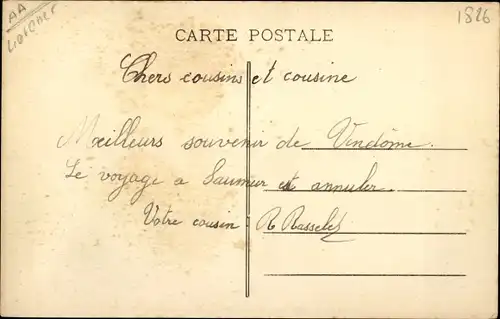 AA
1826
CARTE POSTALE
Chers cousins et cousine
Meilleurs souvenir de Vendôme.
Le voyage a Saumur est annuler.
Votre cousin R Rasselet